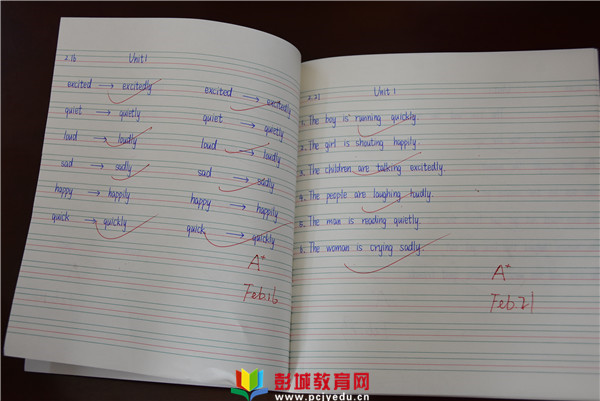 2.16 Unit 1
excited → excitedly
quiet → quietly
loud → loudly
sad → sadly
happy → happily
quick → quickly
excited → excitedly
quiet → quietly
loud → loudly
sad → sadly
happy → happily
quick → quickly
A*
Feb.16
2.21 Unit 1
1. The boy is running quickly.
2. The girl is shouting happily.
3. The children are talking excitedly.
4. The people are laughing loudly.
5. The man is reading quietly.
6. The woman is crying sadly.
A*
Feb.21
彭城教育网
www.pcjyedu.cn